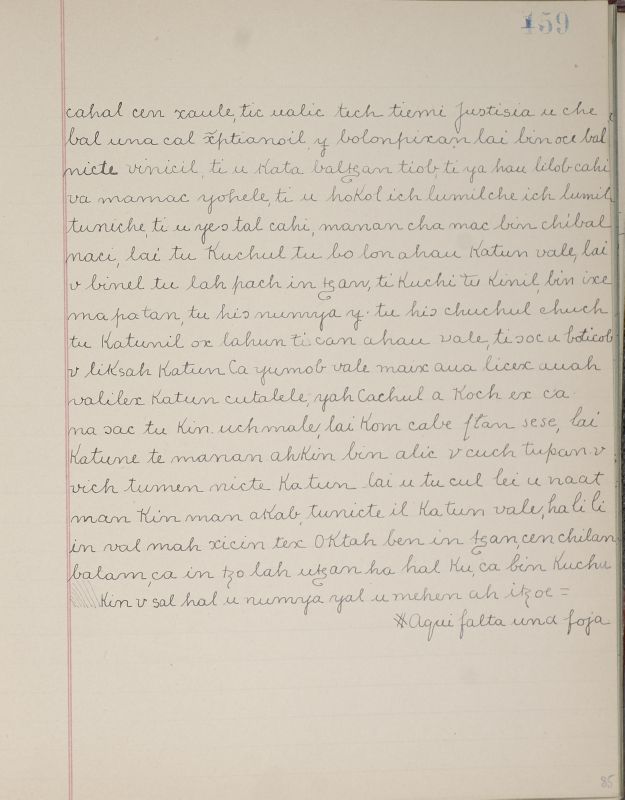 159
cahal cen xaule, tic ualic tech tiemi Justisia u che
bal una cal x̃ptianoil, y bolonpixan lai bin oce bal
nicte vinicil, ti u Kata baltzan tiob ti ya hau lilob cahi
va mamac yohele, ti u hoKol ich lumilche ich lumil
tuniche, ti u yes tal cahi, manan cha mac bin chibal
naci, lai tu Kuchul tu bo lon ahau Katun vale, lai
v binel tu lah pach in tzan, ti Kuchi tu Kinil, bin ixe
ma patan, tu his numya y. tu his chuchul chuch
tu Katunil ox lahun ti can ahau vale, ti soc u boticob
v liKsah Katun Ca yumob vale maix aua licex auah
valilex Katun cutalele, yah Cachul a Koch ex ca
na sac tu Kin. uchmale, lai Kom cabe ftan sese, lai
Katune te manan ahKin bin alic v cuch tupan. v
vich tumen nicte Katun lai u tu cul lei u naat
man Kin man aKab, tunicte il Katun vale, ha li li
in val mah xicin tex OKtah ben in tzan, cen chilan
balam, ca in tzo lah utzan ha hal Ku, ca bin Kuchu
Kin v sal hal u numya yal u mehen ah itzoe =
※ Aqui falta una foja
85